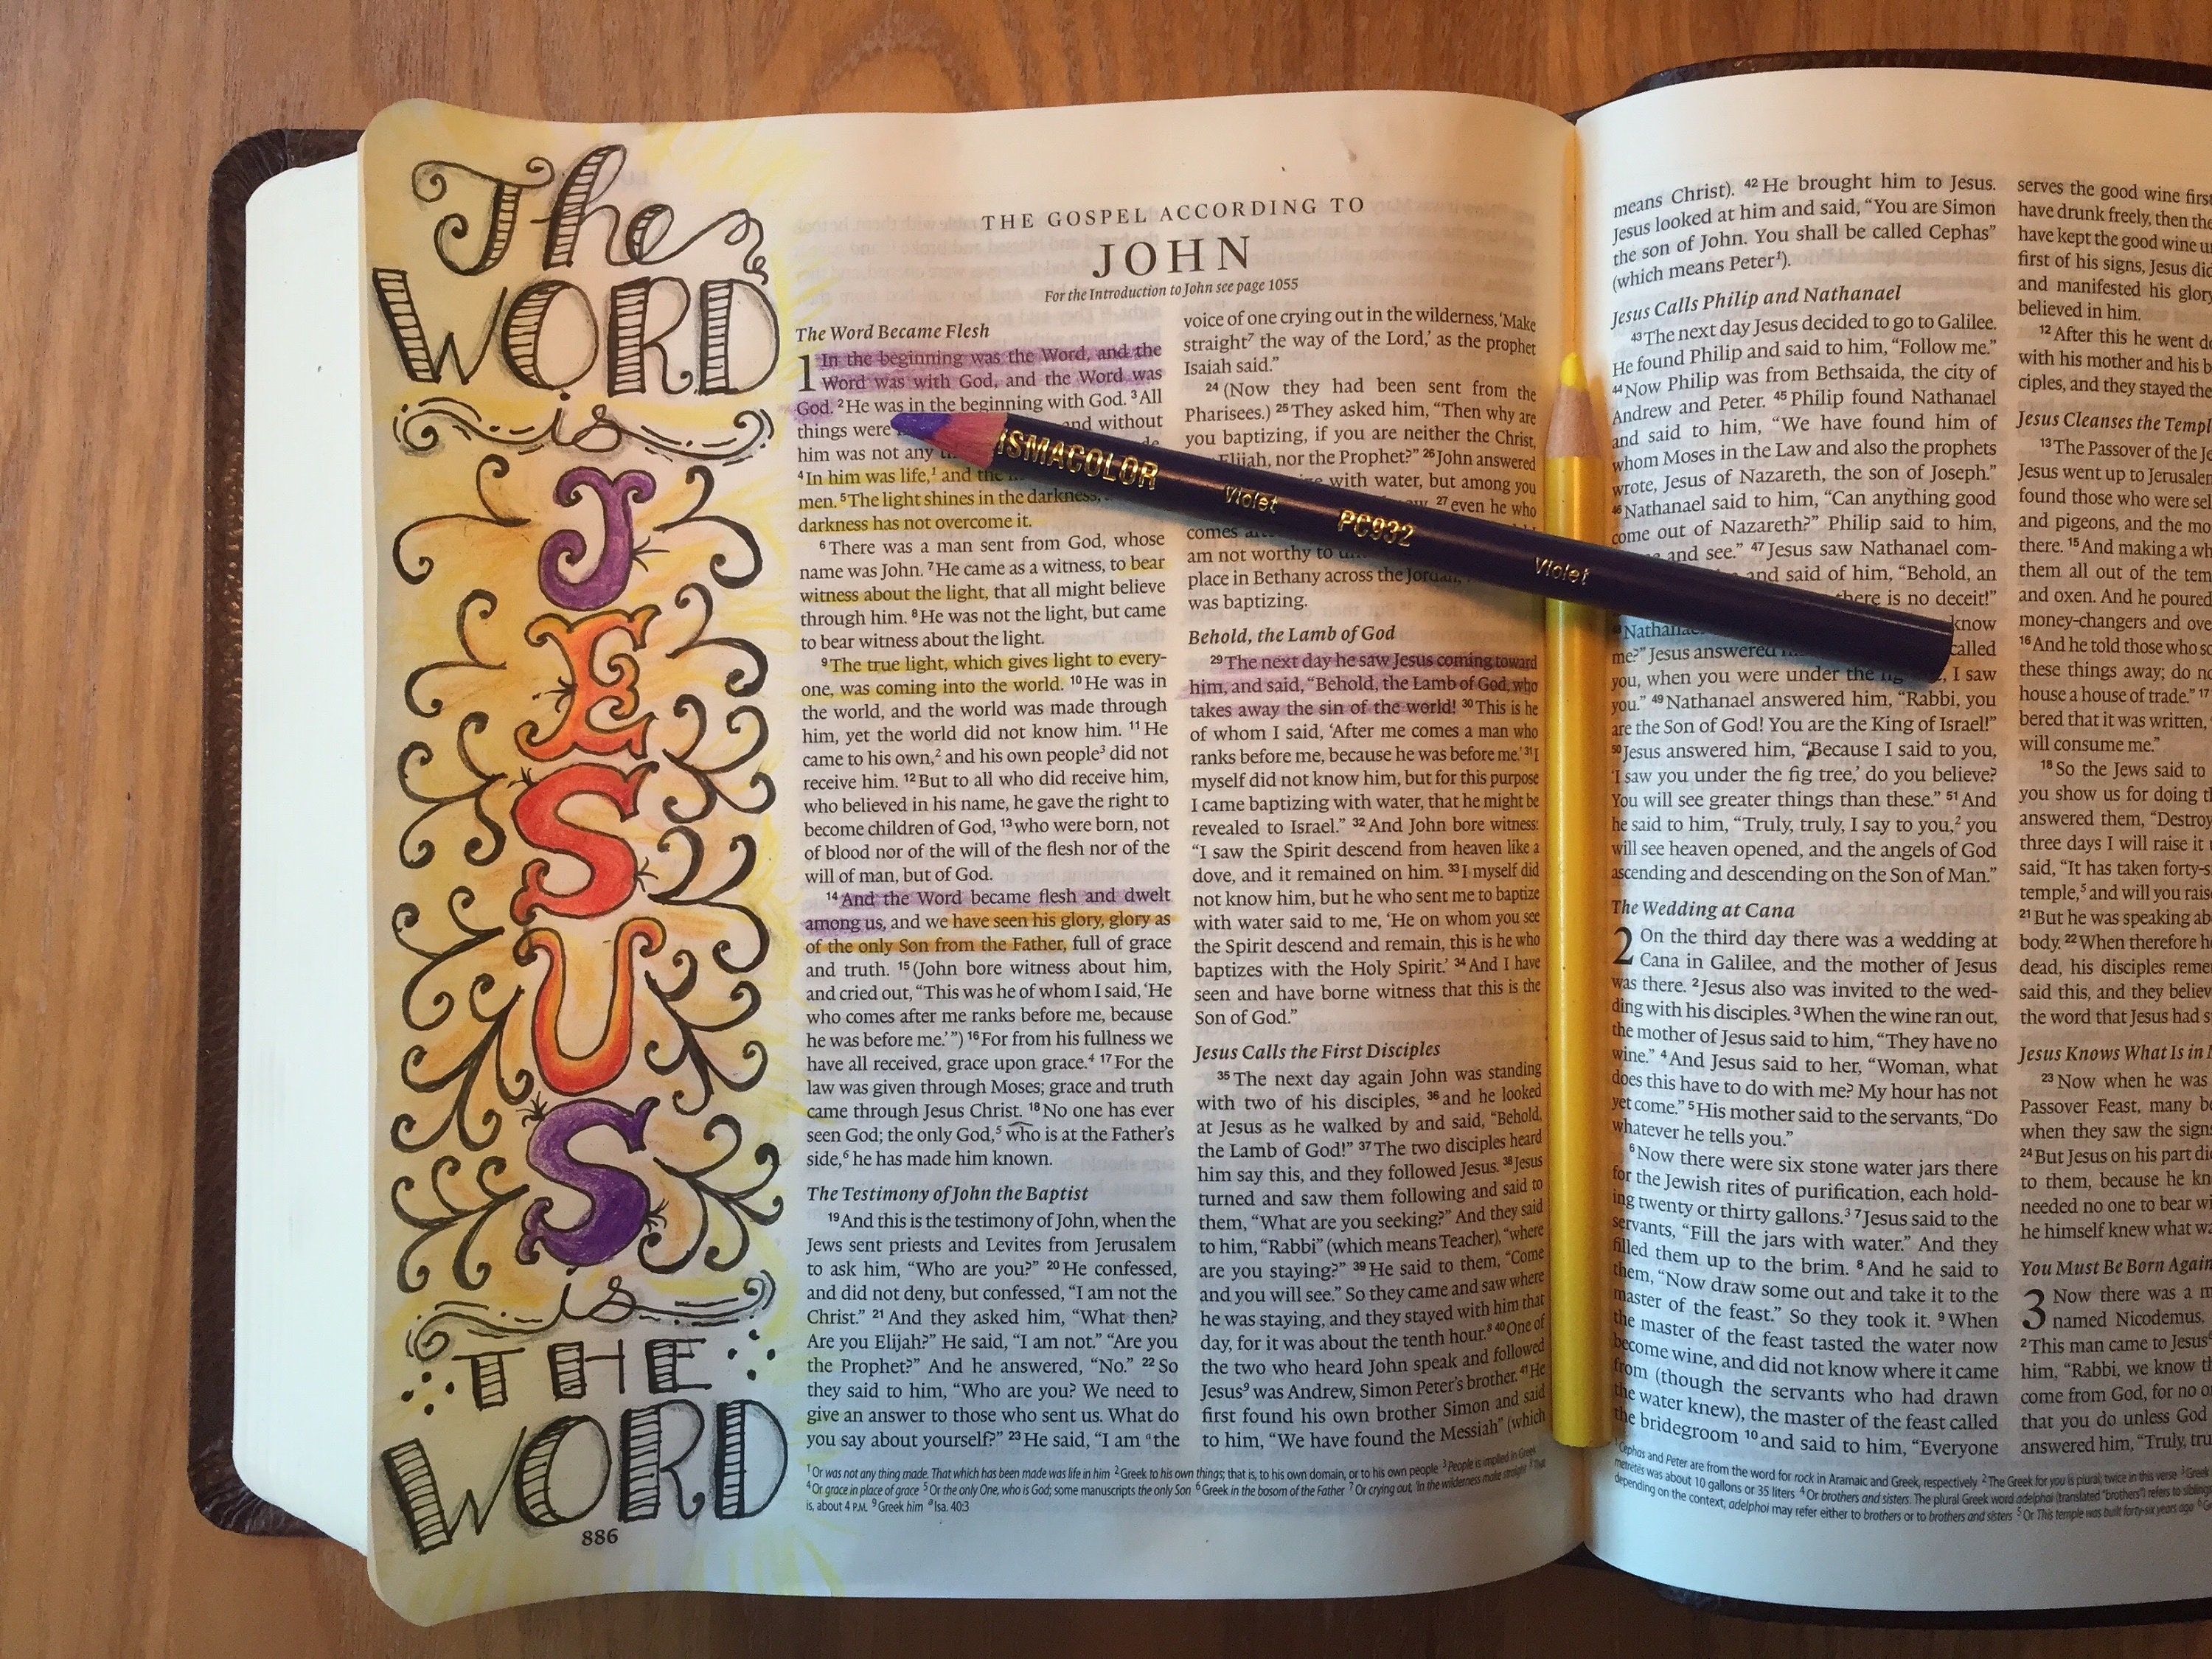 The
WORD
is
JESUS
is
THE
WORD
886
THE GOSPEL ACCORDING TO
JOHN
For the Introduction to John see page 1055
The Word Became Flesh
1 In the beginning was the Word, and the
Word was with God, and the Word was
God. 2 He was in the beginning with God. 3 All
things were and without
him was not any
4 In him was life,1 and the
men. 5 The light shines in the darkness,
darkness has not overcome it.
6 There was a man sent from God, whose
name was John. 7 He came as a witness, to bear
witness about the light, that all might believe
through him. 8 He was not the light, but came
to bear witness about the light.
9 The true light, which gives light to every-
one, was coming into the world. 10 He was in
the world, and the world was made through
him, yet the world did not know him. 11 He
came to his own,2 and his own people3 did not
receive him. 12 But to all who did receive him,
who believed in his name, he gave the right to
become children of God, 13 who were born, not
of blood nor of the will of the flesh nor of the
will of man, but of God.
14 And the Word became flesh and dwelt
among us, and we have seen his glory, glory as
of the only Son from the Father, full of grace
and truth. 15 (John bore witness about him,
and cried out, “This was he of whom I said, ‘He
who comes after me ranks before me, because
he was before me.’”) 16 For from his fullness we
have all received, grace upon grace.4 17 For the
law was given through Moses; grace and truth
came through Jesus Christ. 18 No one has ever
seen God; the only God,5 who is at the Father’s
side,6 he has made him known.
The Testimony of John the Baptist
19 And this is the testimony of John, when the
Jews sent priests and Levites from Jerusalem
to ask him, “Who are you?” 20 He confessed,
and did not deny, but confessed, “I am not the
Christ.” 21 And they asked him, “What then?
Are you Elijah?” He said, “I am not.” “Are you
the Prophet?” And he answered, “No.” 22 So
they said to him, “Who are you? We need to
give an answer to those who sent us. What do
you say about yourself?” 23 He said, “I am a the
voice of one crying out in the wilderness, ‘Make
straight7 the way of the Lord,’ as the prophet
Isaiah said.”
24 (Now they had been sent from the
Pharisees.) 25 They asked him, “Then why are
you baptizing, if you are neither the Christ,
Elijah, nor the Prophet?” 26 John answered
with water, but among you
27 even he who
comes
am not worthy to
place in Bethany across the Jordan,
was baptizing.
Behold, the Lamb of God
29 The next day he saw Jesus coming toward
him, and said, “Behold, the Lamb of God, who
takes away the sin of the world! 30 This is he
of whom I said, ‘After me comes a man who
ranks before me, because he was before me.’ 31 I
myself did not know him, but for this purpose
I came baptizing with water, that he might be
revealed to Israel.” 32 And John bore witness:
“I saw the Spirit descend from heaven like a
dove, and it remained on him. 33 I myself did
not know him, but he who sent me to baptize
with water said to me, ‘He on whom you see
the Spirit descend and remain, this is he who
baptizes with the Holy Spirit.’ 34 And I have
seen and have borne witness that this is the
Son of God.”
Jesus Calls the First Disciples
35 The next day again John was standing
with two of his disciples, 36 and he looked
at Jesus as he walked by and said, “Behold,
the Lamb of God!” 37 The two disciples heard
him say this, and they followed Jesus. 38 Jesus
turned and saw them following and said to
them, “What are you seeking?” And they said
to him, “Rabbi” (which means Teacher), “where
are you staying?” 39 He said to them, “Come
and you will see.” So they came and saw where
he was staying, and they stayed with him that
day, for it was about the tenth hour.8 40 One of
the two who heard John speak and followed
Jesus9 was Andrew, Simon Peter’s brother. 41 He
first found his own brother Simon and said
to him, “We have found the Messiah” (which
1 Or was not any thing made. That which has been made was life in him 2 Greek to his own things; that is, to his own domain, or to his own people 3 People is implied in Greek
4 Or grace in place of grace 5 Or the only One, who is God; some manuscripts the only Son 6 Greek in the bosom of the Father 7 Or crying out, ‘In the wilderness make straight 8 That
is, about 4 P.M. 9 Greek him a Isa. 40:3
ISMACOLOR Violet PC932 Violet
means Christ). 42 He brought him to Jesus.
Jesus looked at him and said, “You are Simon
the son of John. You shall be called Cephas”
(which means Peter1).
Jesus Calls Philip and Nathanael
43 The next day Jesus decided to go to Galilee.
He found Philip and said to him, “Follow me.”
44 Now Philip was from Bethsaida, the city of
Andrew and Peter. 45 Philip found Nathanael
and said to him, “We have found him of
whom Moses in the Law and also the prophets
wrote, Jesus of Nazareth, the son of Joseph.”
46 Nathanael said to him, “Can anything good
come out of Nazareth?” Philip said to him,
and see.” 47 Jesus saw Nathanael com-
and said of him, “Behold, an
there is no deceit!”
48 Nathanael know
me?” Jesus answered called
you, when you were under the fig I saw
you.” 49 Nathanael answered him, “Rabbi, you
are the Son of God! You are the King of Israel!”
50 Jesus answered him, “Because I said to you,
‘I saw you under the fig tree,’ do you believe?
You will see greater things than these.” 51 And
he said to him, “Truly, truly, I say to you,2 you
will see heaven opened, and the angels of God
ascending and descending on the Son of Man.”
The Wedding at Cana
2 On the third day there was a wedding at
Cana in Galilee, and the mother of Jesus
was there. 2 Jesus also was invited to the wed-
ding with his disciples. 3 When the wine ran out,
the mother of Jesus said to him, “They have no
wine.” 4 And Jesus said to her, “Woman, what
does this have to do with me? My hour has not
yet come.” 5 His mother said to the servants, “Do
whatever he tells you.”
6 Now there were six stone water jars there
for the Jewish rites of purification, each hold-
ing twenty or thirty gallons.3 7 Jesus said to the
servants, “Fill the jars with water.” And they
filled them up to the brim. 8 And he said to
them, “Now draw some out and take it to the
master of the feast.” So they took it. 9 When
the master of the feast tasted the water now
become wine, and did not know where it came
from (though the servants who had drawn
the water knew), the master of the feast called
the bridegroom 10 and said to him, “Everyone
serves the good wine first
have drunk freely, then the
have kept the good wine
first of his signs, Jesus did
and manifested his glory
believed in him.
12 After this he went
with his mother and his
ciples, and they stayed
Jesus Cleanses the
13 The Passover of the
Jesus went up to
found those who were
and pigeons, and the
there. 15 And making a
them all out of the
and oxen. And he poured
money-changers and
16 And he told those who
these things away; do
house a house of trade.” 17
bered that it was written,
will consume me.”
18 So the Jews said to
you show us for doing
answered them, “Destroy
three days I will raise it
said, “It has taken
temple,5 and will you
21 But he was speaking
body. 22 When therefore
dead, his disciples
said this, and they
the word that Jesus had
Jesus Knows What Is in
23 Now when he was
Passover Feast, many
when they saw the
24 But Jesus on his part
to them, because he
needed no one to bear
he himself knew what
You Must Be Born Again
3 Now there was a
named Nicodemus,
2 This man came to Jesus
him, “Rabbi, we know
come from God, for no
that you do unless God
answered him, “Truly,
1 Cephas and Peter are from the word for rock in Aramaic and Greek, respectively 2 The Greek for you is plural; twice in this verse 3 Greek
metretes was about 10 gallons or 35 liters 4 Or brothers and sisters. The plural Greek word adelphoi (translated “brothers”) refers to
depending on the context, adelphoi may refer either to brothers or to brothers and sisters 5 Or This temple was built forty-six years ago